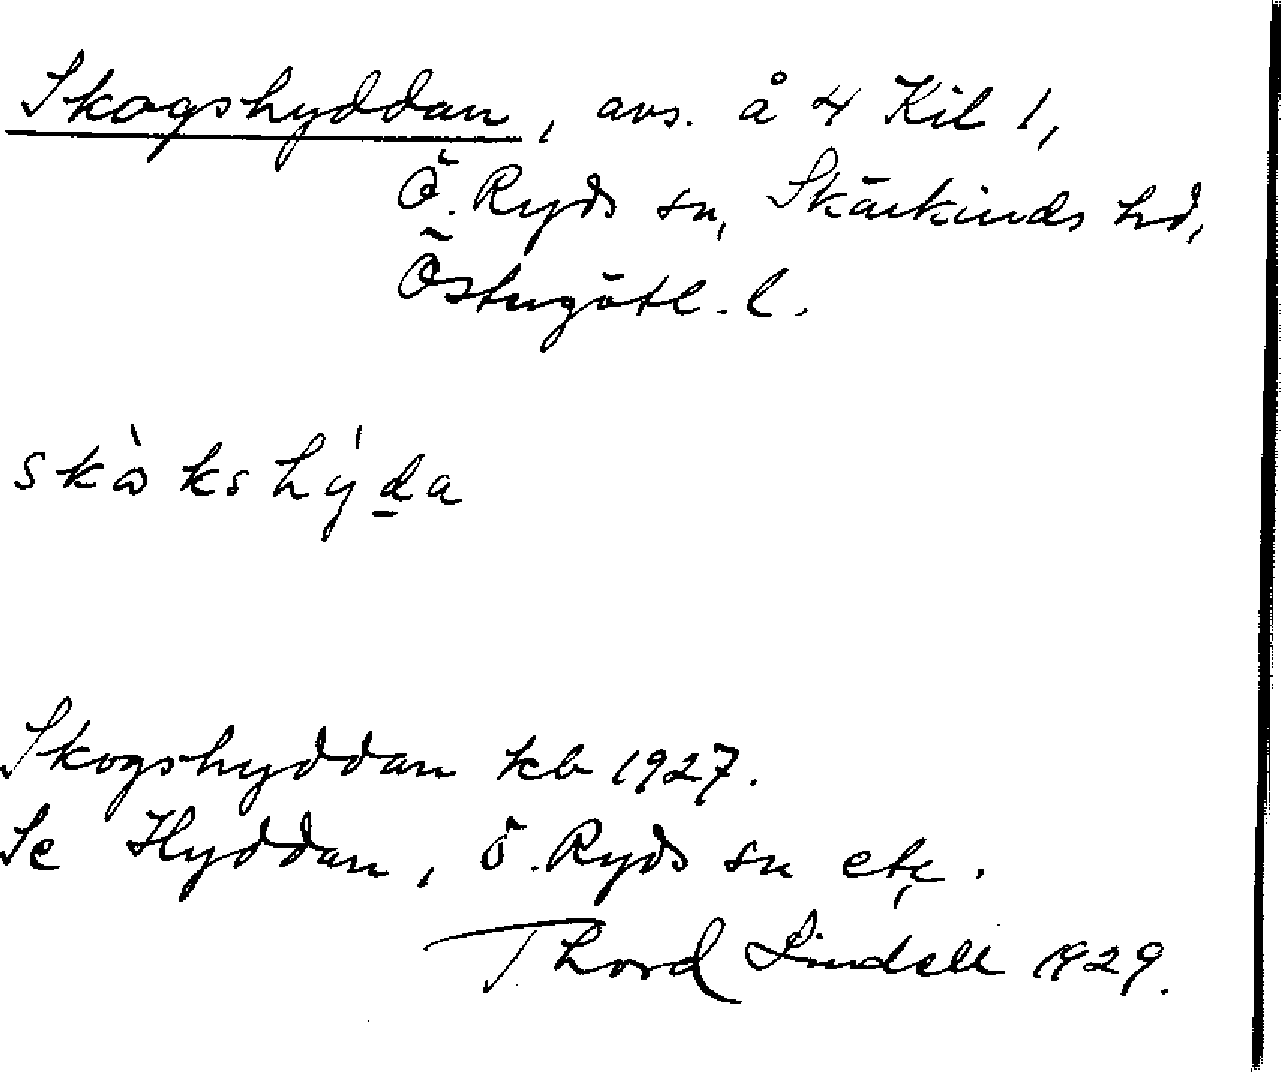 Skogshyddan, avs. å 4 Kil 1,
Ö. Ryds sn, Skärkinds hd,
Östergötl. l.
skὼkshýd̲a
Skogshyddan kb 1927.
Se Hyddan, Ö. Ryds sn etc.
Thord Lindell 1929.